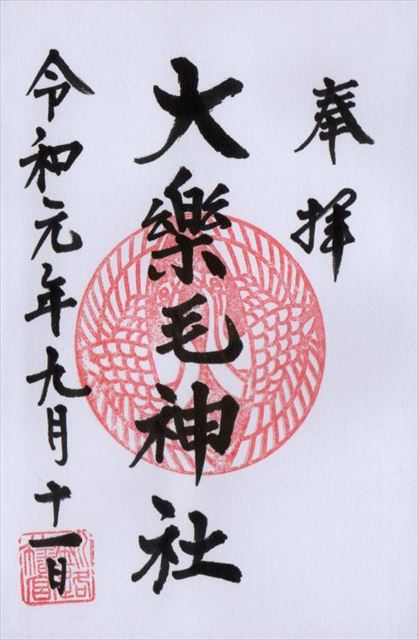 奉拝
大樂毛神社
令和元年九月十一日